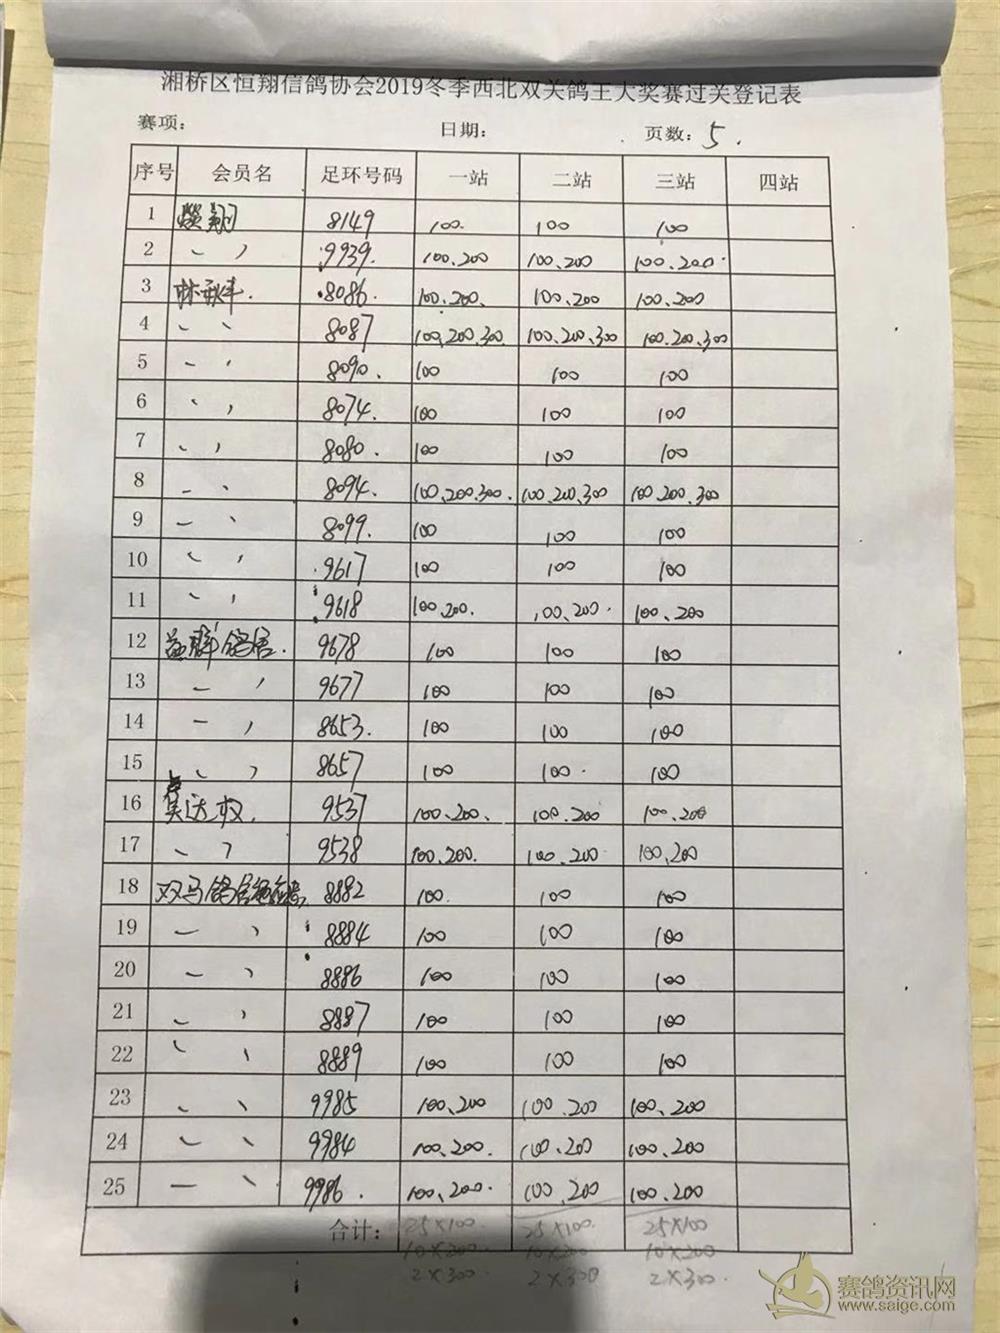 湘桥区恒翔信鸽协会2019冬季西北双关鸽王大奖赛过关登记表
赛项: 日期: 页数: 5.
序号 会员名 足环号码 一站 二站 三站 四站
1 翔 8149 100. 100 100
2 〃 9939. 100.200 100.200 100.200.
3 林秋丰. 8086. 100.200. 100.200 100.200
4 〃 8087 100.200.300. 100.200.300 100.200.300
5 〃 8090. 100 100 100
6 〃 8074. 100 100 100
7 〃 8080. 100 100 100
8 〃 8094. 100.200.300. 100.200.300 100.200.300
9 〃 8099. 100 100 100
10 〃 9617 100 100 100
11 〃 9618 100.200. 100.200. 100.200
12 益群鸽舍. 9678 100 100 100
13 〃 9677 100 100 100
14 〃 8653. 100 100 100
15 〃 8657 100 100. 100
16 吴达权. 9537 100.200. 100.200 100.200
17 〃 9538 100.200. 100.200 100,200
18 双马鸽舍 8882 100. 100 100
19 〃 8884 100 100 100
20 〃 8886 100 100 100
21 〃 8887 100 100 100
22 〃 8889 100 100 100
23 〃 9985 100.200 100.200 100.200
24 〃 9984 100.200. 100.200 100.200
25 〃 9986. 100.200. 100.200 100.200
合计: 25×100. 25×100. 25×100
10×200. 10×200 10×200
2×300. 2×300 2×300.
赛鸽资讯网
www.saige.com